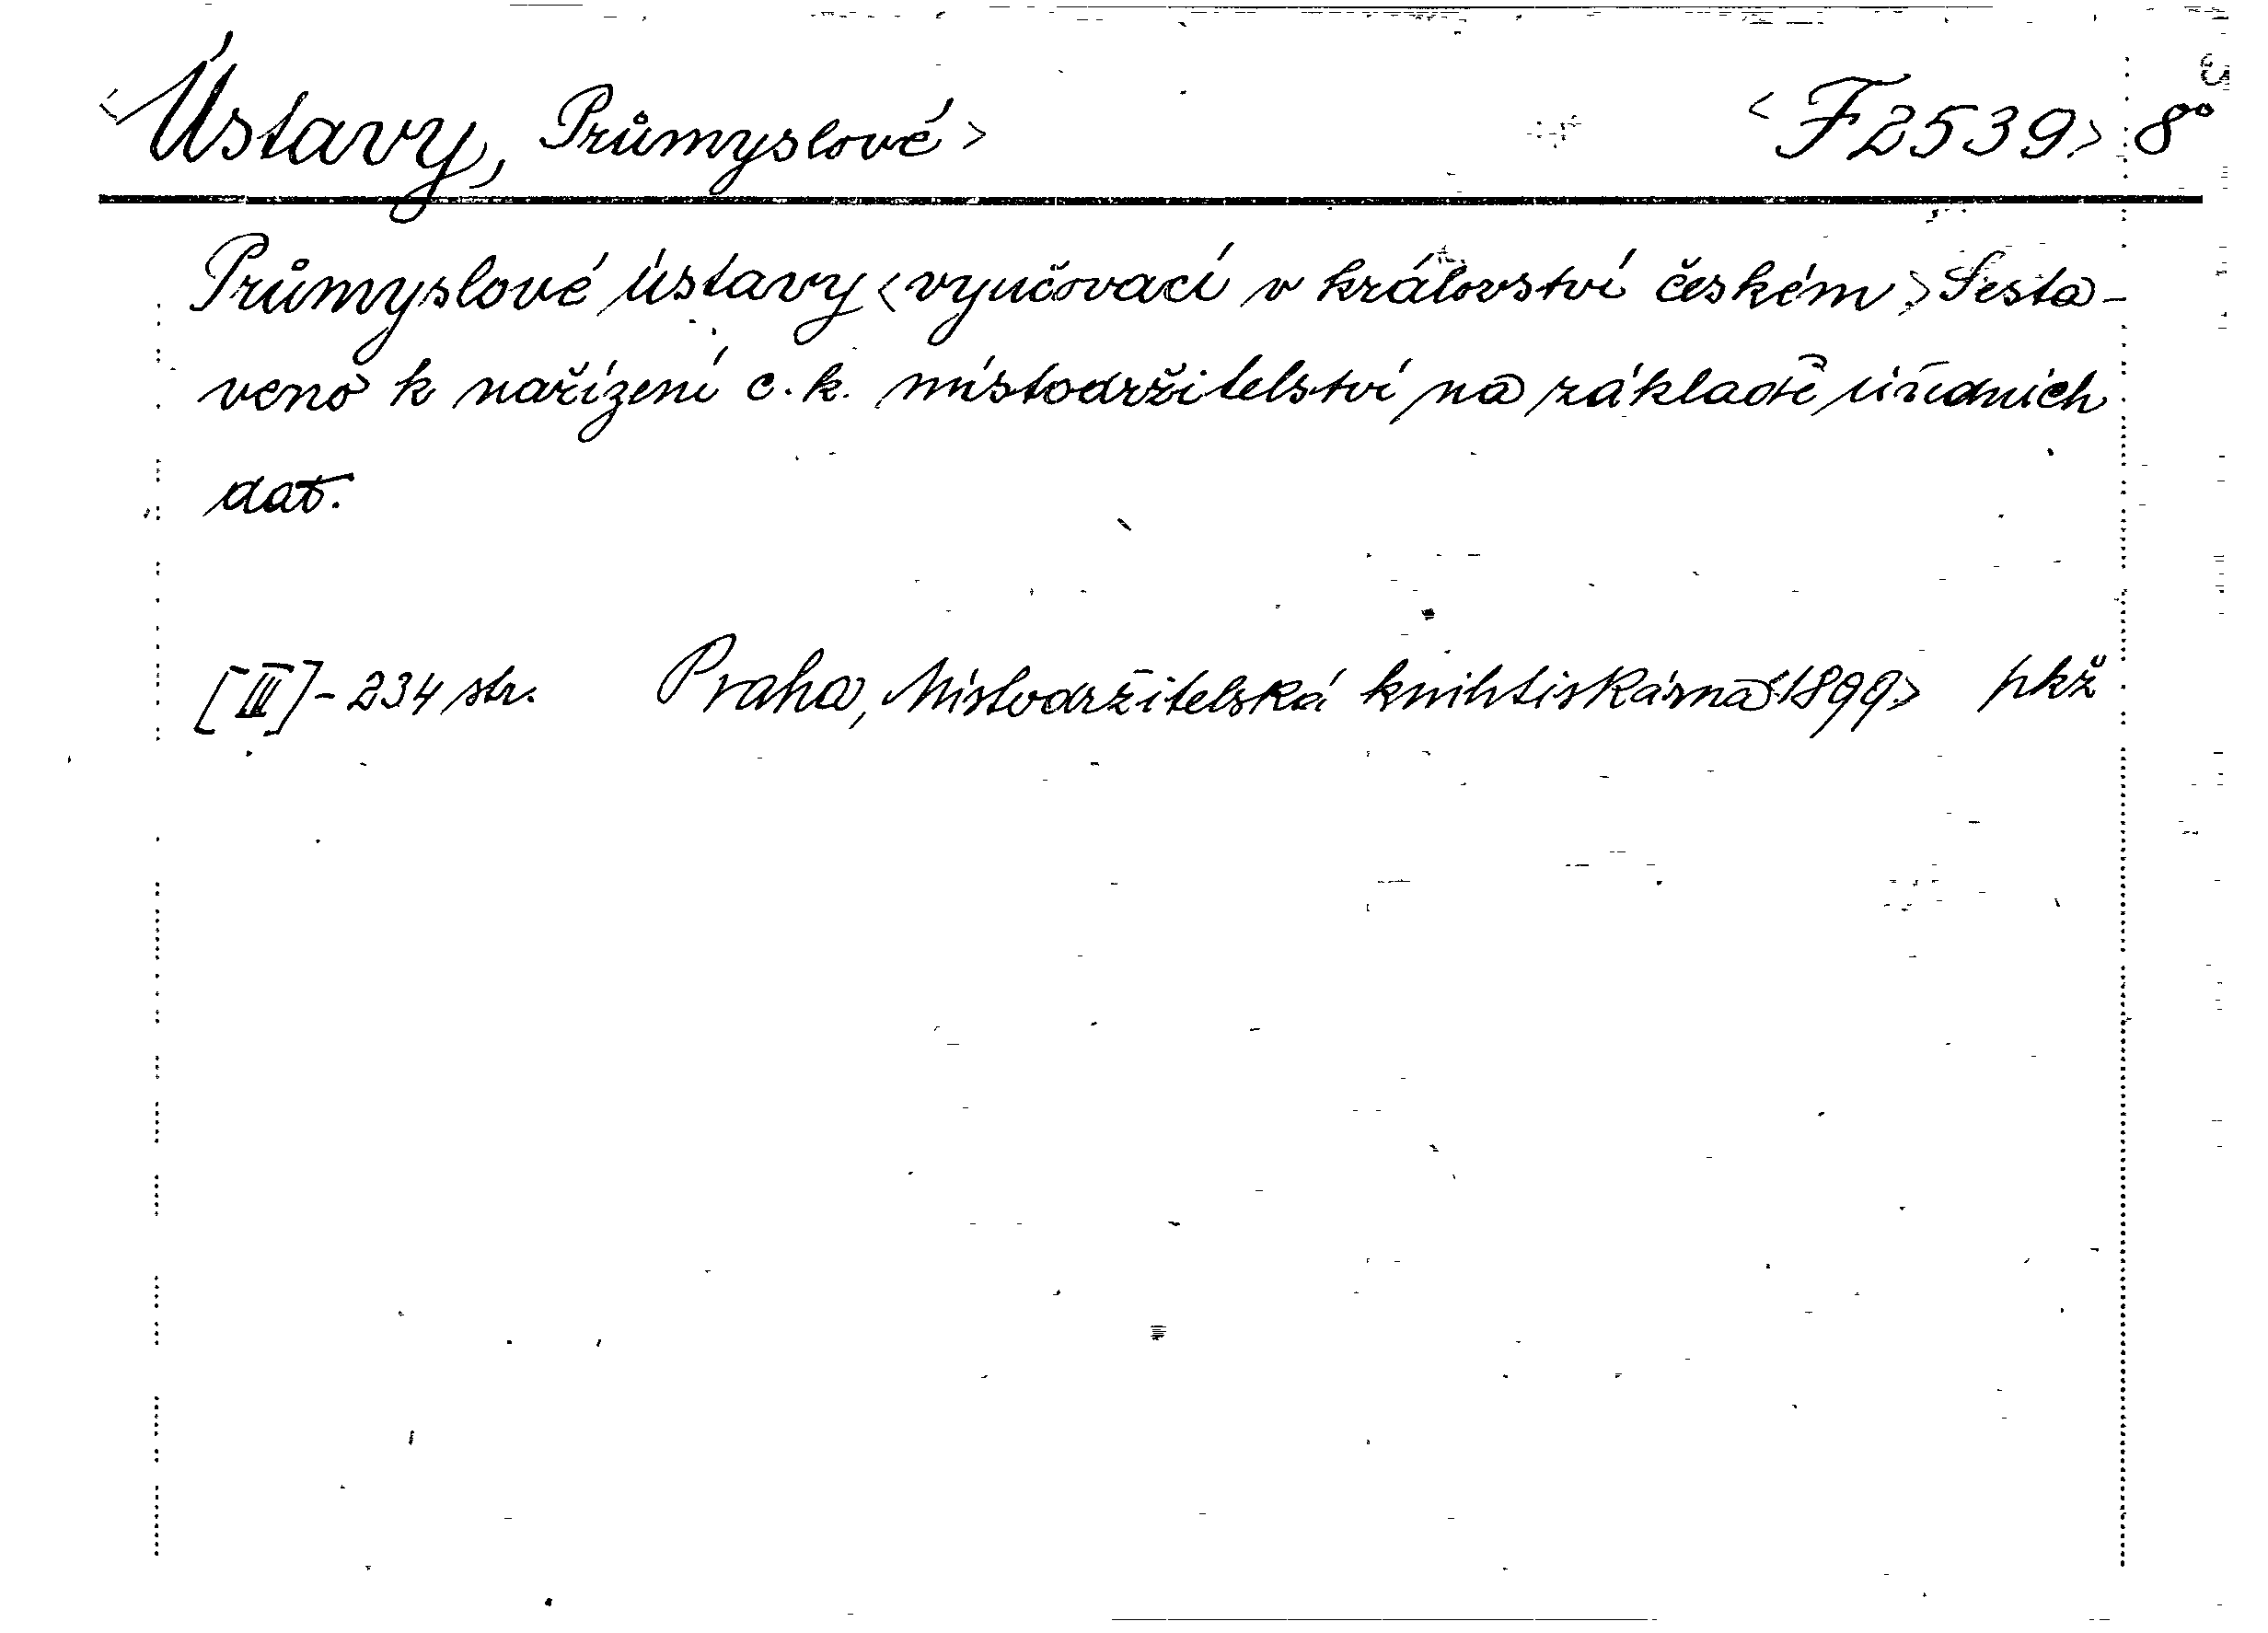 <Ústavy, Průmyslové> <F 2539> 8°
Průmyslové ústavy <vyučovací v království českém> Sesta-
veno k nařízení c. k. místodržitelství na základě úředních
dat.
[III]-234 str. Praha, Místodržitelská knihtiskárna <1899> pkž